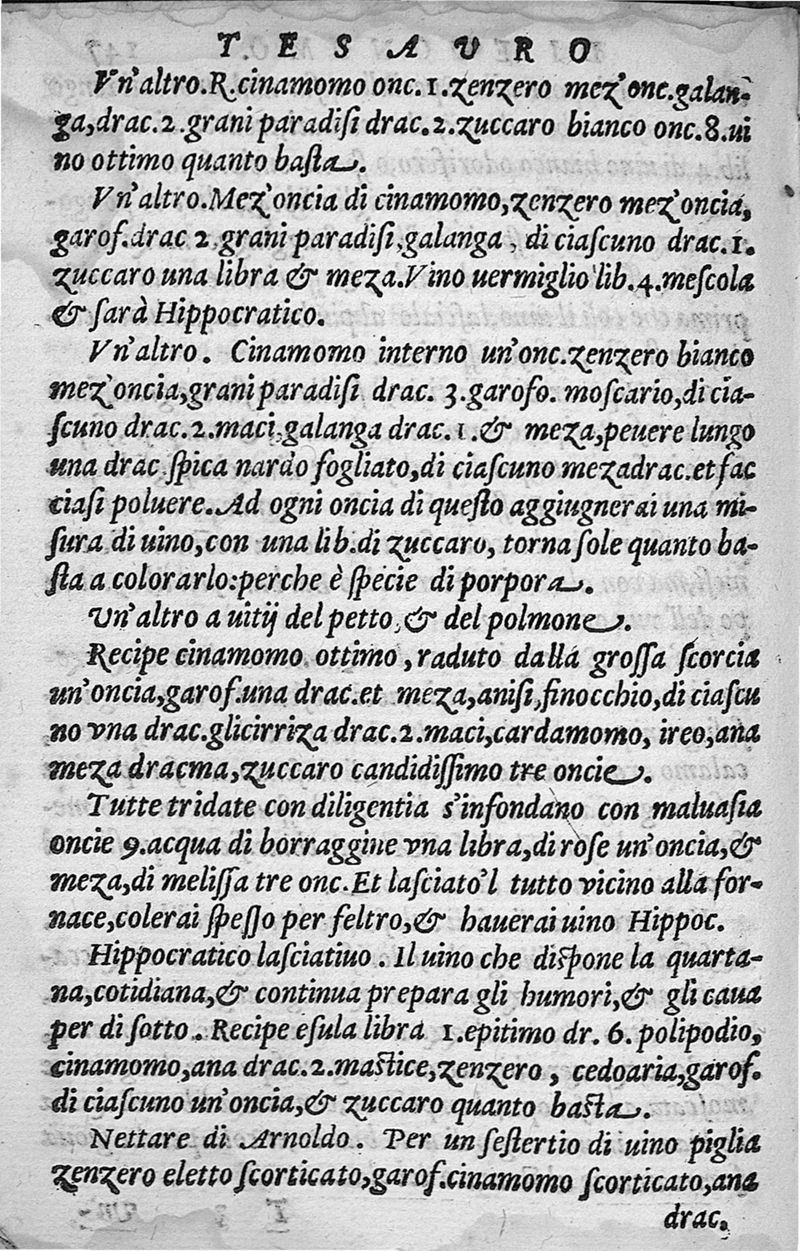 TESAURO
Vn'altro.R.cinamomo onc.1.zenzero mez'onc.galan-
ga,drac.2.grani paradiſi drac.2.zuccaro bianco onc.8.ui
no ottimo quanto baſta.
Vn'altro.Mez'oncia di cinamomo,zenzero mez'oncia,
garof.drac 2.grani paradiſi,galanga, di ciaſcuno drac.1.
zuccaro una libra & meza.Vino uermiglio lib.4.meſcola
& ſarà Hippocratico.
Vn'altro. Cinamomo interno un'onc.zenzero bianco
mez'oncia,grani paradiſi drac. 3.garofo. moſcario,di cia-
ſcuno drac.2.maci,galanga drac.1.& meza,peuere lungo
una drac.ſpica nardo fogliato,di ciaſcuno mezadrac.et fac
ciaſi poluere.Ad ogni oncia di queſto aggiugnerai una mi-
ſura di uino,con una lib.di zuccaro, tornaſole quanto ba-
ſta a colorarlo:perche è ſpecie di porpora.
Vn'altro a uitij del petto,& del polmone.
Recipe cinamomo ottimo, raduto dalla groſſa ſcorcia
un'oncia,garof.una drac.et meza,aniſi,finocchio,di ciaſcu
no vna drac.glicirriza drac.2.maci,cardamomo, ireo,ana
meza dracma,zuccaro candidiſſimo tre oncie.
Tutte tridate con diligentia s'infondano con maluaſia
oncie 9.acqua di borraggine vna libra,di roſe un'oncia,&
meza,di meliſſa tre onc.Et laſciato'l tutto vicino alla for-
nace,colerai ſpeſſo per feltro,& hauerai uino Hippoc.
Hippocratico laſciatiuo. Il uino che diſpone la quarta-
na,cotidiana,& continua prepara gli humori,& gli caua
per di ſotto. Recipe eſula libra 1.epitimo dr. 6. polipodio,
cinamomo,ana drac.2.maſtice,zenzero, cedoaria,garof.
di ciaſcuno un'oncia,& zuccaro quanto baſta.
Nettare di Arnoldo. Per un ſeſtertio di uino piglia
zenzero eletto ſcorticato,garof.cinamomo ſcorticato,ana
drac.